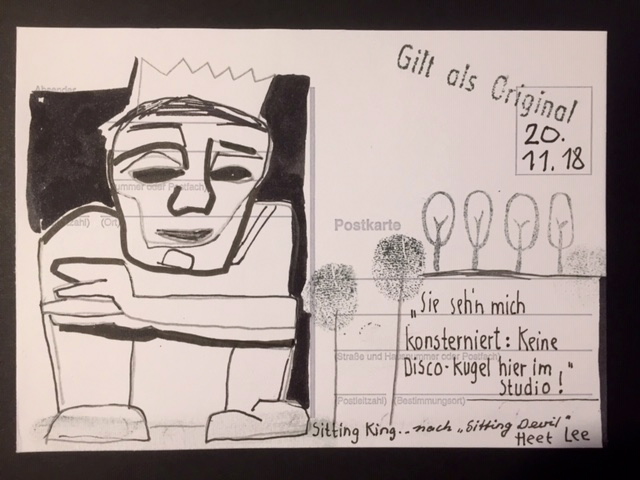 Gilt als Original
20.
11.18
Absender
(Ort)
Postkarte
„Sie seh'n mich
konsterniert: Keine
(Straße und Hausnummer oder Postfach)
Disco-Kugel hier im
Studio!"
(Postleitzahl) (Bestimmungsort)
Sitting King.. nach „Sitting Devil"
Heet Lee